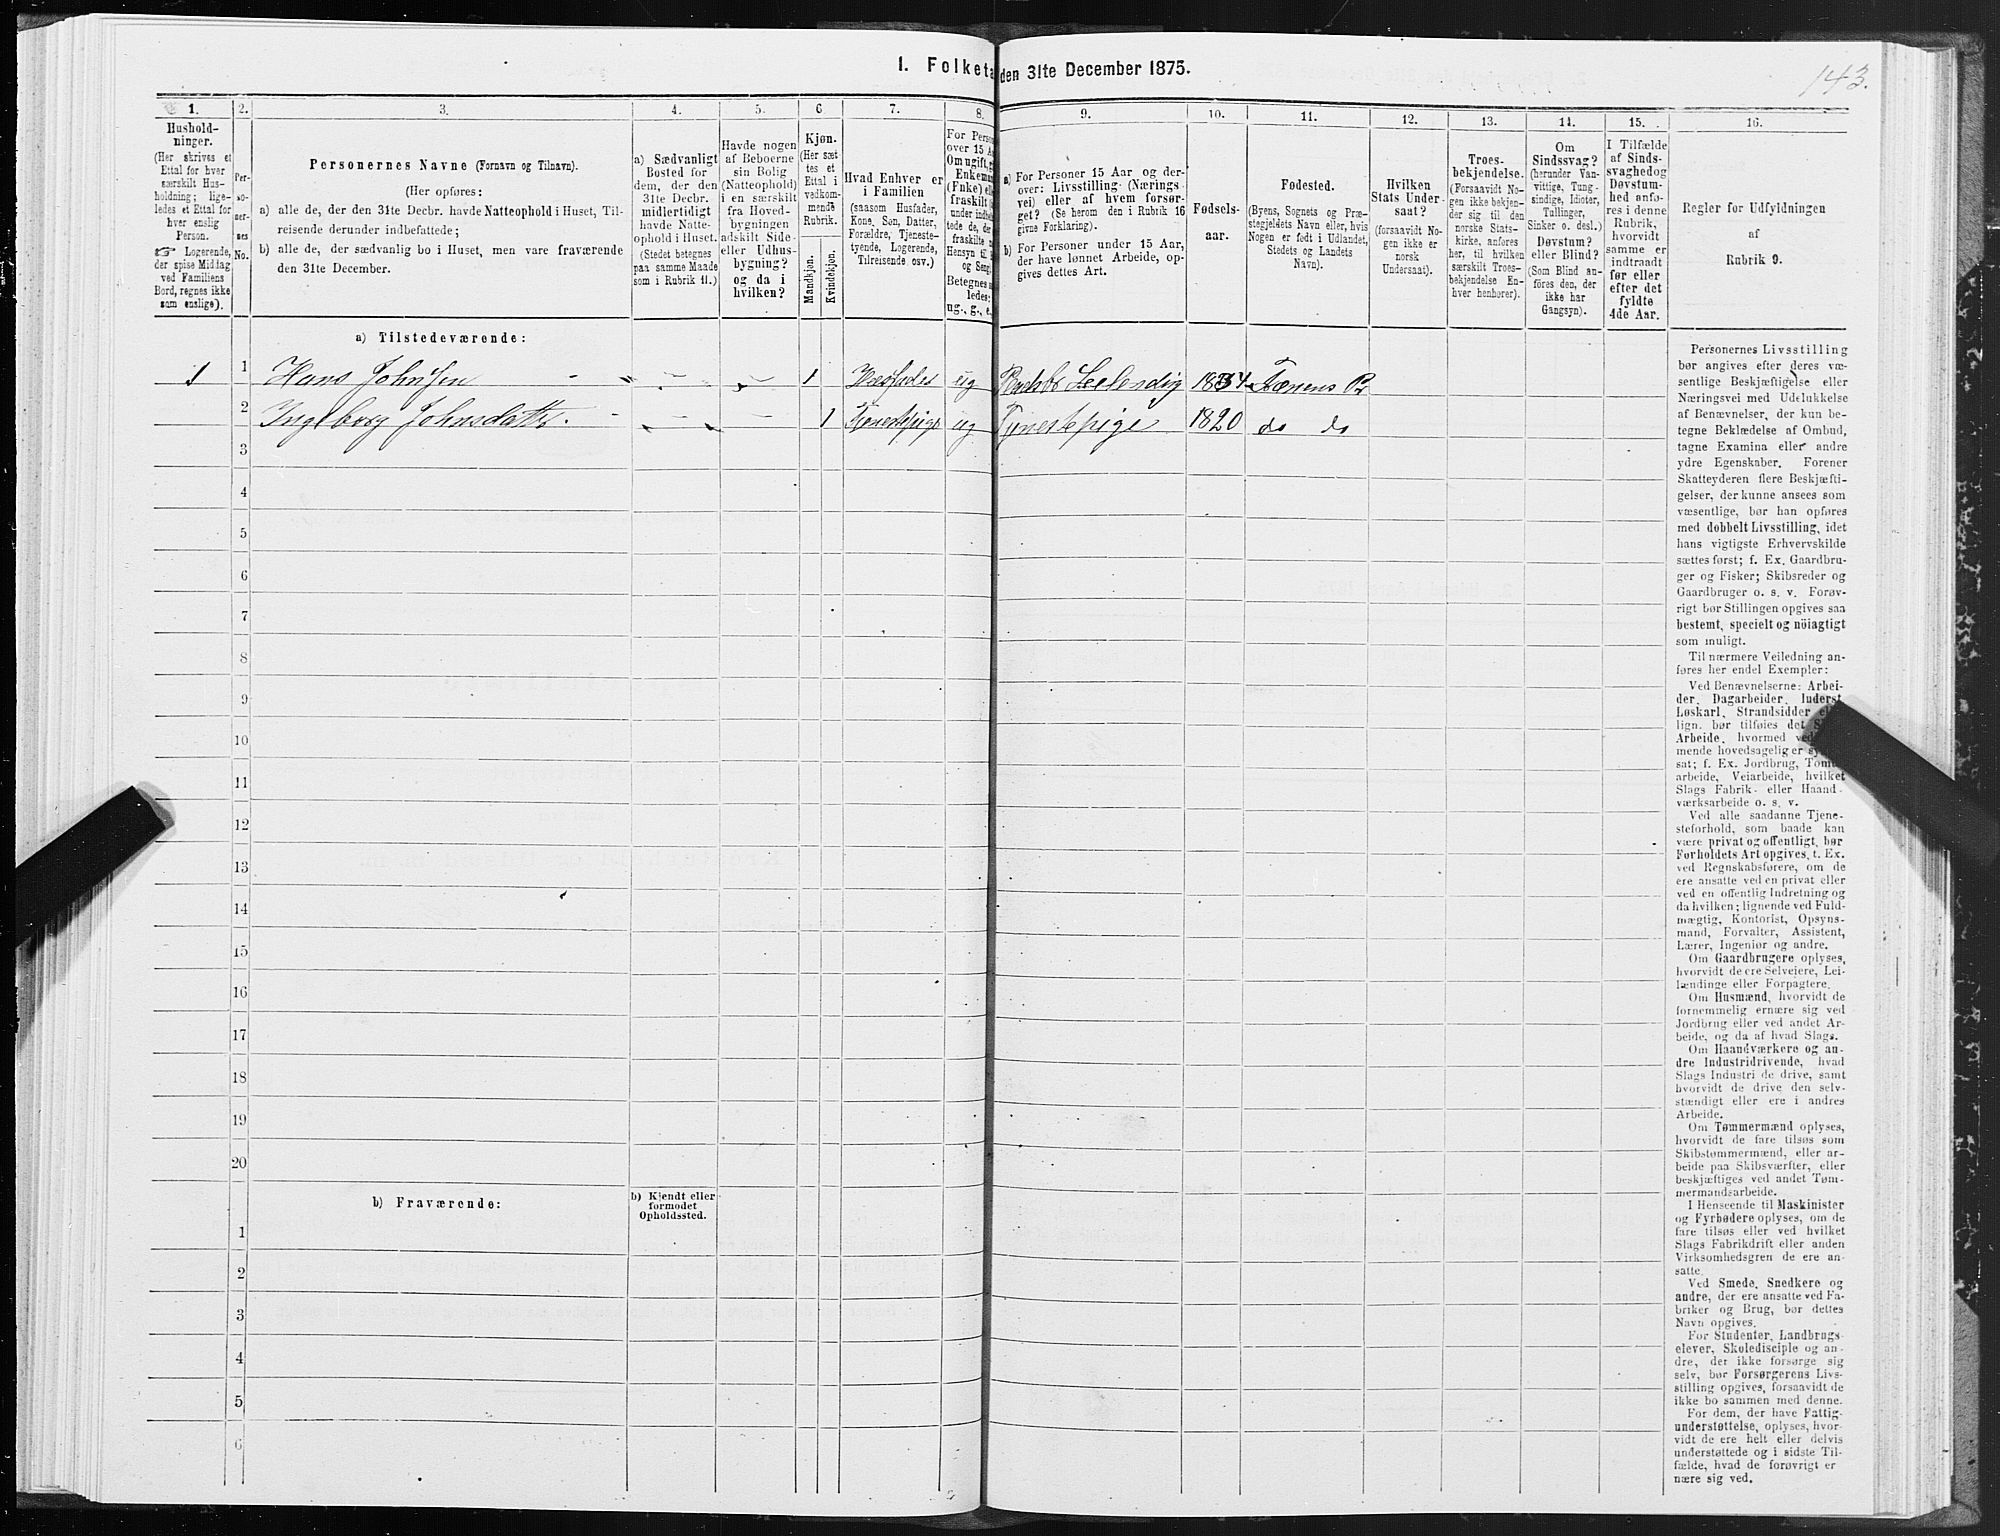 143.
1. Folketa den 31te December 1875.
1.
2.
3.
4.
5.
6
7.
8.
9.
10.
11.
12.
13.
14.
15.
16.
Hushold-
ninger.
(Her skrives et
Ettal for hver
særskilt Hus-
holdning; lige-
ledes et Ettal for
hver enslig
Person.
☞ Logerende,
der spise Middag
ved Familiens
Bord, regnes ikke
som enslige).
Per-
so-
ner-
nes
No.
Personernes Navne (Fornavn og Tilnavn).
(Her opføres:
a) alle de, der den 31te Decbr. havde Natteophold i Huset, Til-
reisende derunder indbefattede;
b) alle de, der sædvanlig bo i Huset, men vare fraværende
den 31te December.
a) Sædvanligt
Bosted for
dem, der den
31te Decbr.
midlertidigt
havde Natte-
ophold i Huset.
(Stedet betegnes
paa samme Maade
som i Rubrik 11.)
Havde nogen
af Beboerne
sin Bolig
(Natteophold)
i en særskilt
fra Hoved-
bygningen
adskilt Side-
eller Udhus-
bygning?
og da i
hvilken?
Kjøn.
(Her sæt
tes et
Ettal i
vedkom-
mende
Rubrik.
Mandkjøn.
Kvindekjøn.
Hvad Enhver er
i Familien
(saasom Husfader,
Kone, Søn, Datter,
Forældre, Tjeneste-
tyende, Logerende,
Tilreisende osv.)
For Person
over 15 A
Om ugift, g
Enkeman
(Enke) ell
fraskilt
under indt
tede de, der
fraskilte
Hensyn til
og Seng.
Betegnes s
ledes:
ug., g., e.
a) For Personer 15 Aar og der-
over: Livsstilling (Nærings-
vei) eller af hvem forsør-
get? (Se herom den i Rubrik 16
givne Forklaring).
b) For Personer under 15 Aar,
der have lønnet Arbeide, op-
gives dettes Art.
Fødsels-
aar.
Fødested.
(Byens, Sognets og Præ-
stegjeldets Navn eller, hvis
Nogen er født i Udlandet,
Stedets og Landets
Navn).
Hvilken
Stats Under-
saat?
(forsaavidt No-
gen ikke er
norsk
Undersaat).
Troes-
bekjendelse.
(Forsaavidt No-
gen ikke bekjen-
der sig til den
norske Stats-
kirke, anføres
her, til hvilken
særskilt Troes-
bekjendelse En-
hver henhører).
Om
Sindssvag?
(herunder Van-
vittige, Tung-
sindige, Idioter,
Tullinger,
Sinker o. desl.)
Døvstum?
eller Blind?
(Som Blind an-
føres den, der
ikke har
Gangsyn).
I Tilfælde
af Sinds-
svaghed og
Døvstum-
hed anfø-
res i denne
Rubrik,
hvorvidt
samme er
indtraadt
før eller
efter det
fyldte
4de Aar.
Regler for Udfyldningen
af
Rubrik 9.
a) Tilstedeværende:
1 1 Hans Johnsen 1 Husfader ug 1834
2 Ingeborg Johnsdatter 1 Tjenestepige ug Tjenestepige 1820 do do
3
4
5
6
7
8
9
10
11
12
13
14
15
16
17
18
19
20
b) Fraværende:
b) Kjendt eller
formodet
Opholdssted.
1
2
3
4
5
6
Personernes Livsstilling
bør angives efter deres væ-
sentlige Beskjæftigelse eller
Næringsvei med Udelukkelse
af Benævnelser, der kun be-
tegne Beklædelse af Ombud,
tagne Examina eller andre
ydre Egenskaber. Forener
Skatteyderen flere Beskjæfti-
gelser, der kunne ansees som
væsentlige, bør han opføres
med dobbelt Livsstilling, idet
hans vigtigste Erhvervskilde
sættes først; f. Ex. Gaardbru-
ger og Fisker; Skibsreder og
Gaardbruger o. s. v. Forøv-
rigt bør Stillingen opgives saa
bestemt, specielt og nöiagtigt
som muligt.
Til nærmere Veiledning an-
føres her endel Exempler:
Ved Benævnelserne: Arbei-
der, Dagarbeider, Inderst,
Løskarl, Strandsidder
lign. bør tilføies det
Arbeide, hvormed
mende hovedsagelig er
sat; f. Ex. Jordbrug,
arbeide, Veiarbeide, hvilket
Slags Fabrik- eller Haand-
værksarbeide o. s. v.
Ved alle saadanne Tjene-
steforhold, som baade kan
være privat og offentligt, bør
Forholdets Art opgives, t. Ex.
ved Regnskabsførere, om de
ere ansatte ved en privat eller
ved en offentlig Indretning og
da hvilken; lignende ved Fuld-
mægtig, Kontorist, Opsyns-
mand, Forvalter, Assistent,
Lærer, Ingeniør og andre.
Om Gaardbrugere oplyses,
hvorvidt de ere Selveiere, Lei-
lændinge eller Forpagtere.
Om Husmænd, hvorvidt de
fornemmelig ernære sig ved
Jordbrug eller ved andet Ar-
beide, og da af hvad Slags.
Om Haandværkere og an-
dre Industridrivende, hvad
Slags Industri de drive, samt
hvorvidt de drive den selv-
stændigt eller ere i andres
Arbeide.
Om Tømmermænd oplyses,
hvorvidt de fare tilsøs som
Skibstømmermænd, eller ar-
beide paa Skibsværfter, eller
beskjæftiges ved andet Tøm-
mermandsarbeide.
I Henseende til Maskinister
og Fyrbødere oplyses, om de
fare tilsøs eller ved hvilket
Slags Fabrikdrift eller anden
Virksomhedsgren de ere an-
satte.
Ved Smede, Snedkere og
andre, der ere ansatte ved Fa-
briker og Brug, bør dettes
Navn opgives.
For Studenter, Landbrugs-
elever, Skoledisciple og an-
dre, der ikke forsørge sig
selv, bør Forsørgerens Livs-
stilling opgives, forsaavidt de
ikke bo sammen med denne.
For dem, der have Fattig-
understøttelse, oplyses, hvor-
vidt de ere helt eller delvis
understøttede og i sidste Til-
fælde, hvad de forøvrigt er
nære sig ved.